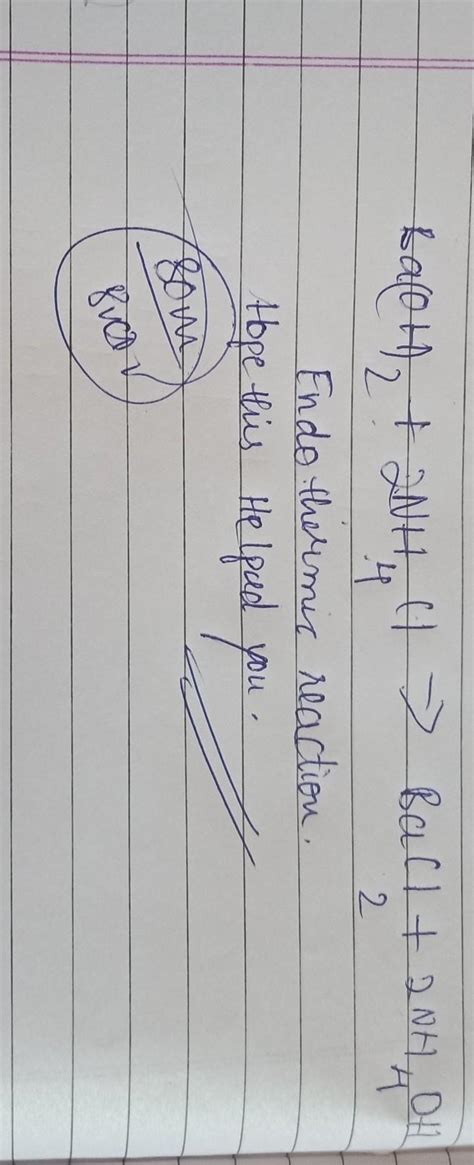 Ba(OH)2 + 2NH4Cl → BaCl2 + 2NH4OH
Endothermic reaction.
Hope this Helped you.